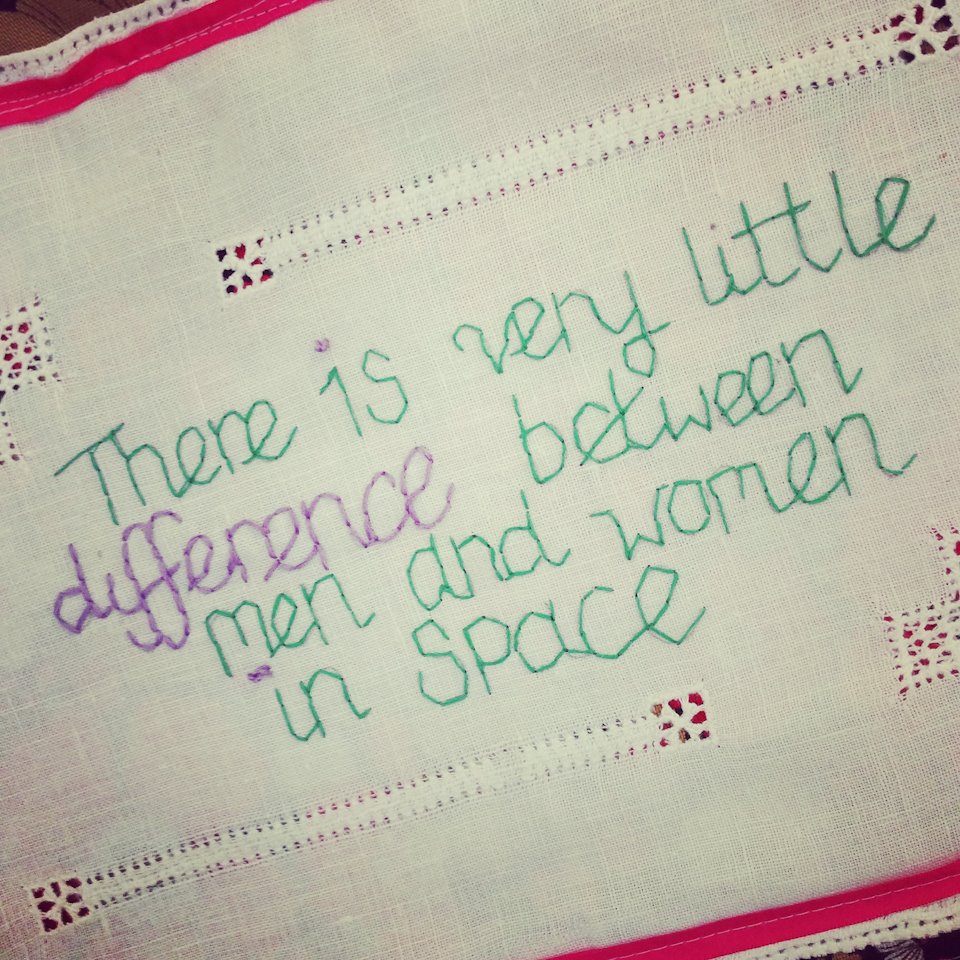 There is very little
difference between
men and women
in Space